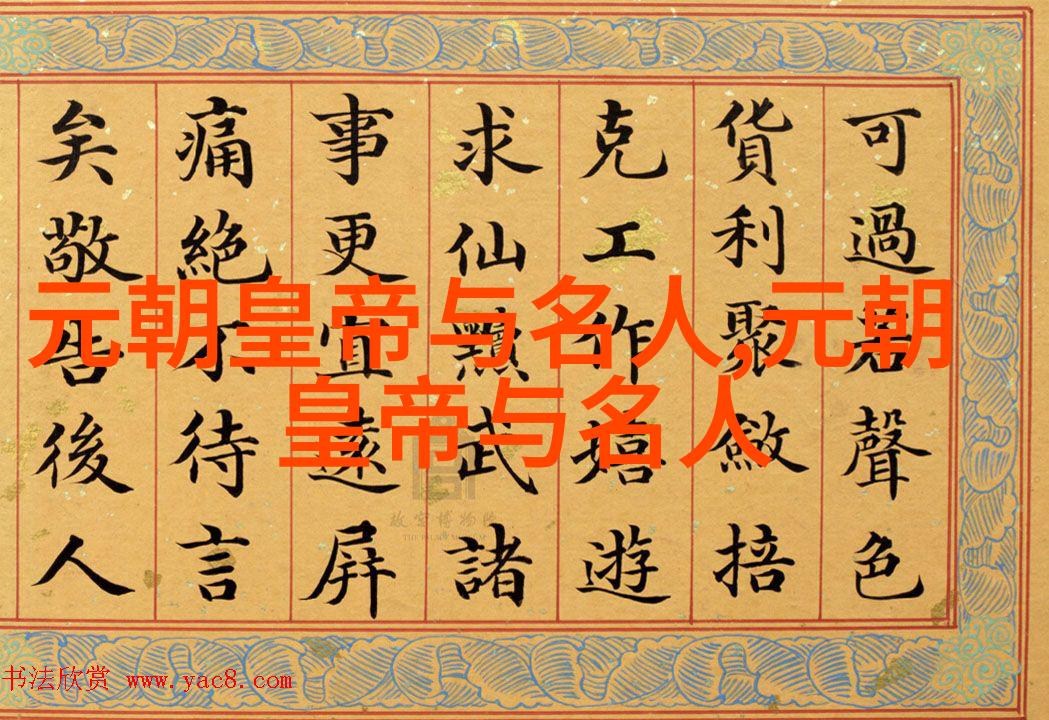 可過若聲色
貨利聚斂掊
克工作嬉遊
求仙黷武諸
事更宜遠屏
痛絕不待言
矣敬告後人
元朝皇帝与名人,元朝
皇帝与名人
故宫博物院
THE PALACE MUSEUM
书法欣赏 www.yac8.com